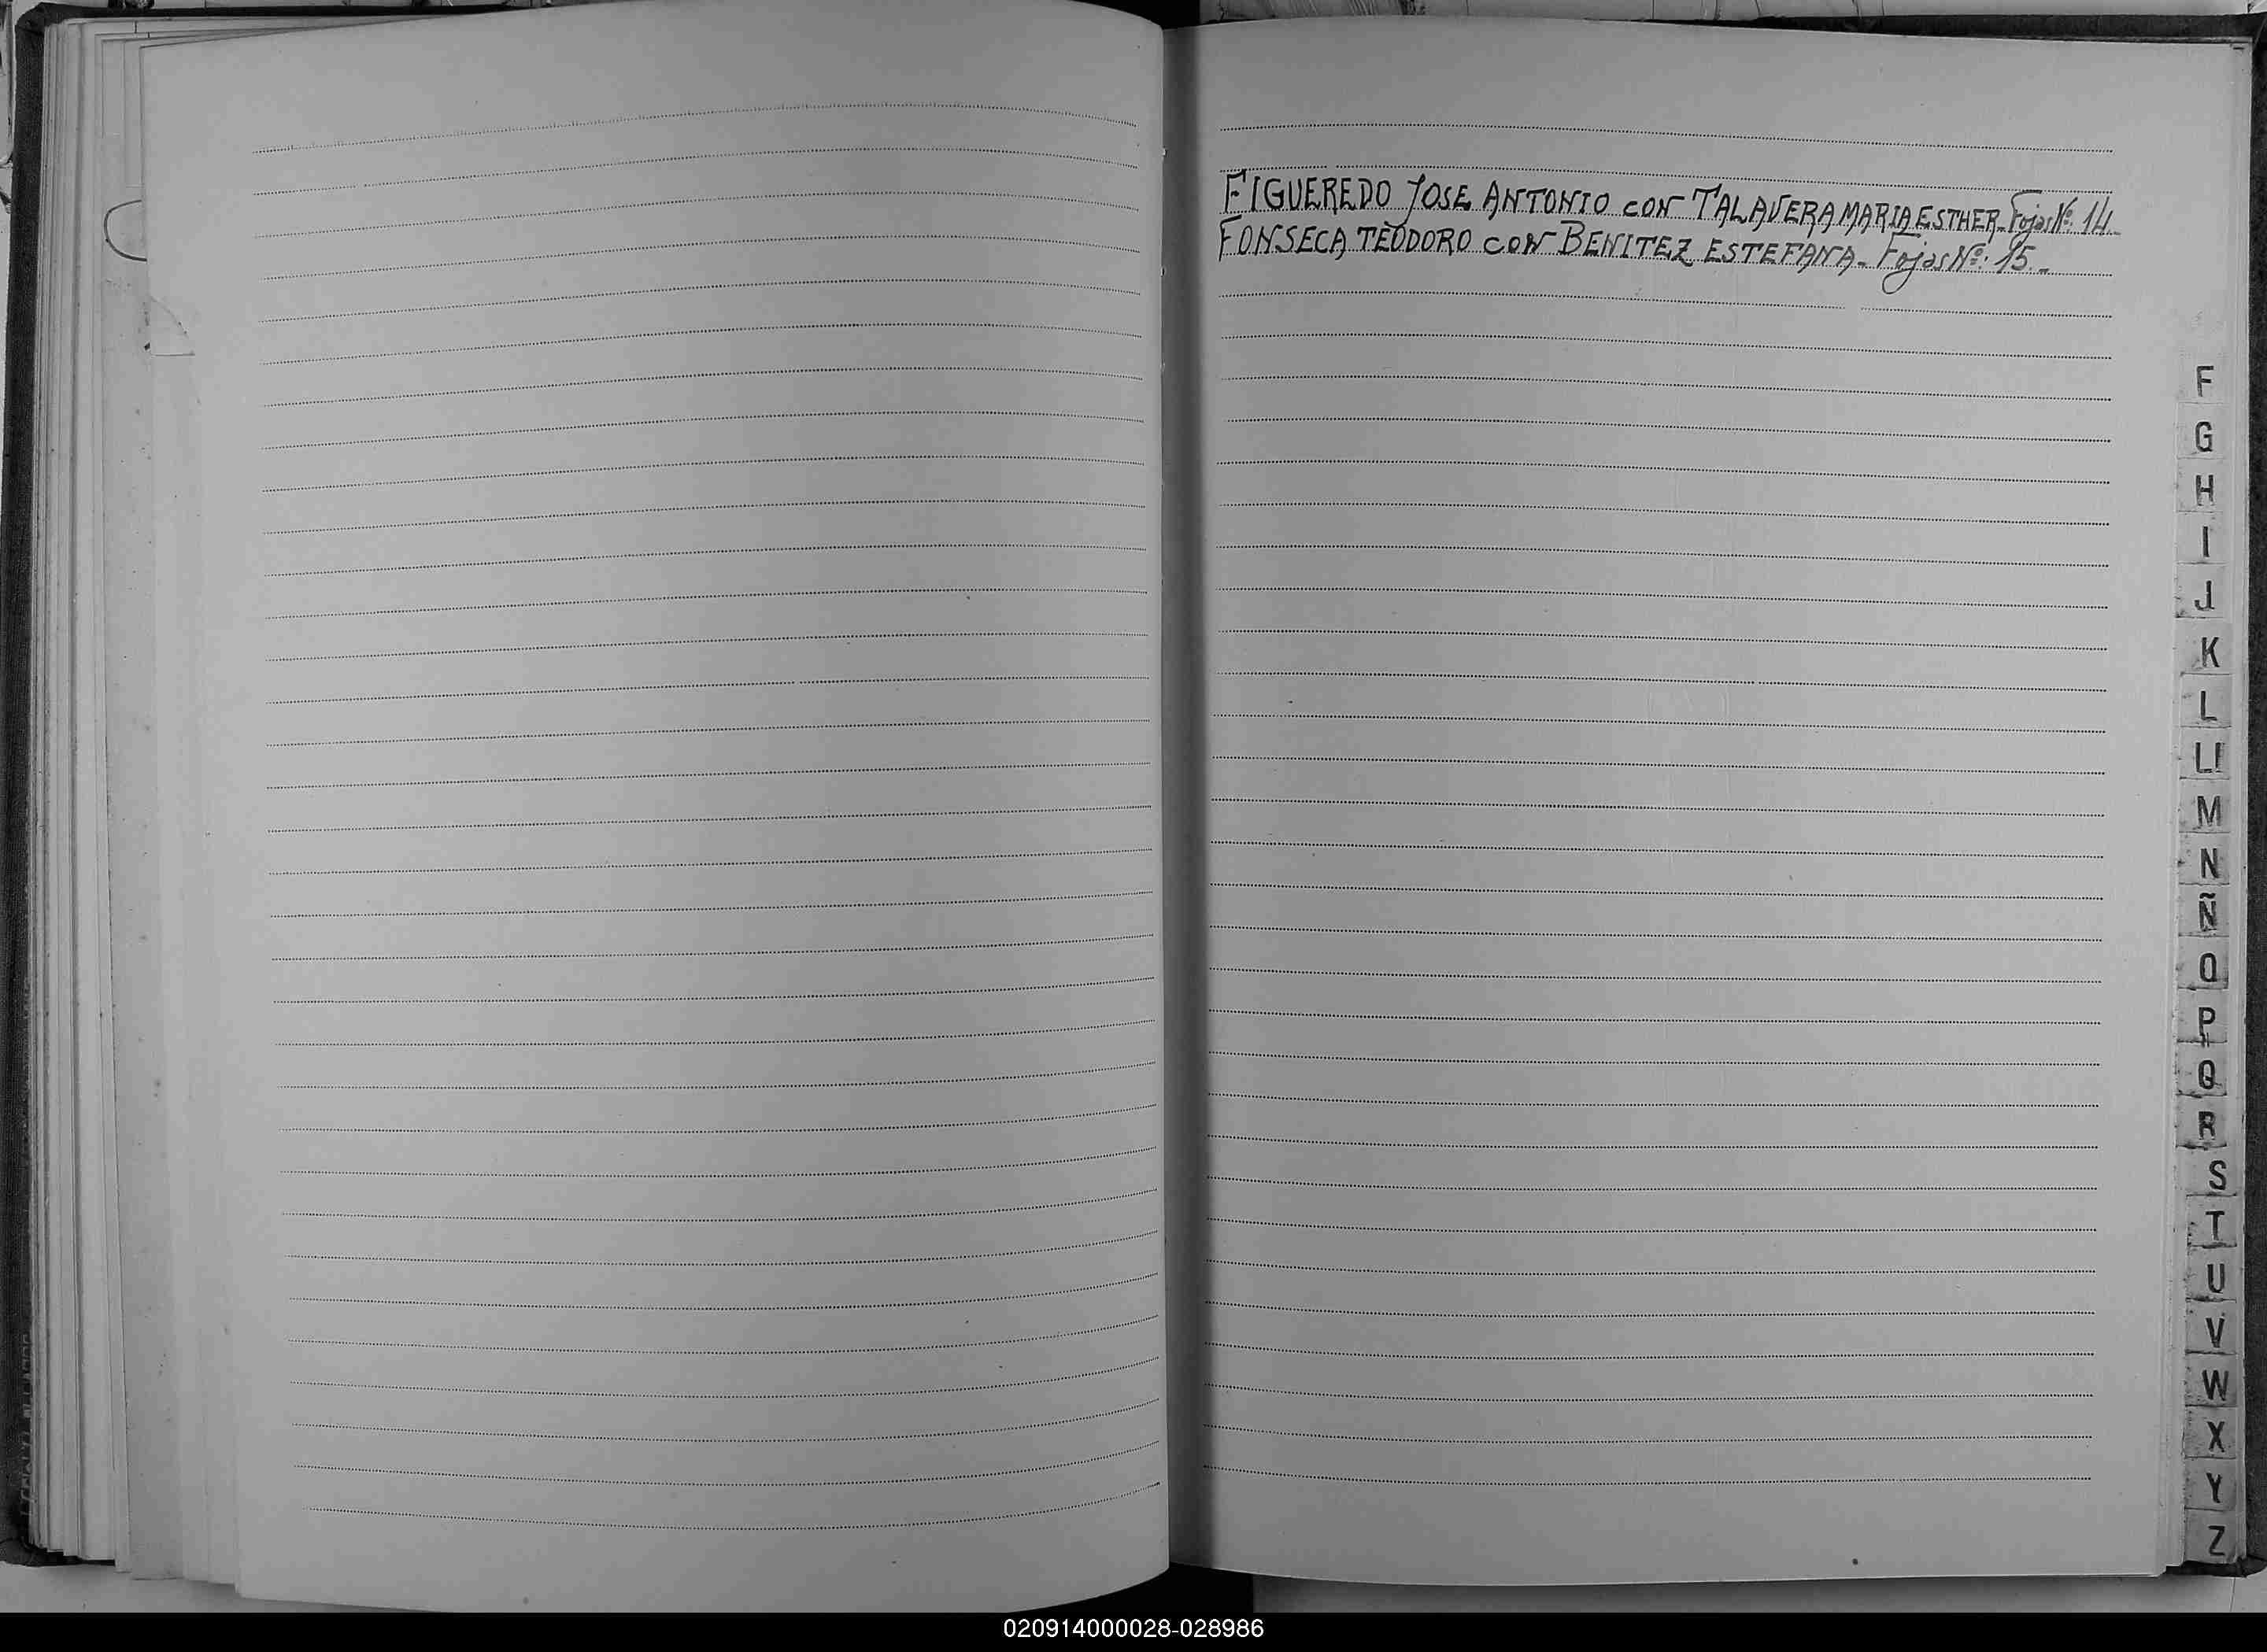 FIGUEREDO JOSE ANTONIO con TALAVERA MARIA ESTHER.- Fojas Nº: 14.-
FONSECA TEODORO con BENITEZ ESTEFANA.- Fojas Nº: 15.-
F
G
H
I
J
K
L
Ll
M
N
Ñ
O
P
Q
R
S
T
U
V
W
X
Y
Z
020914000028-028986